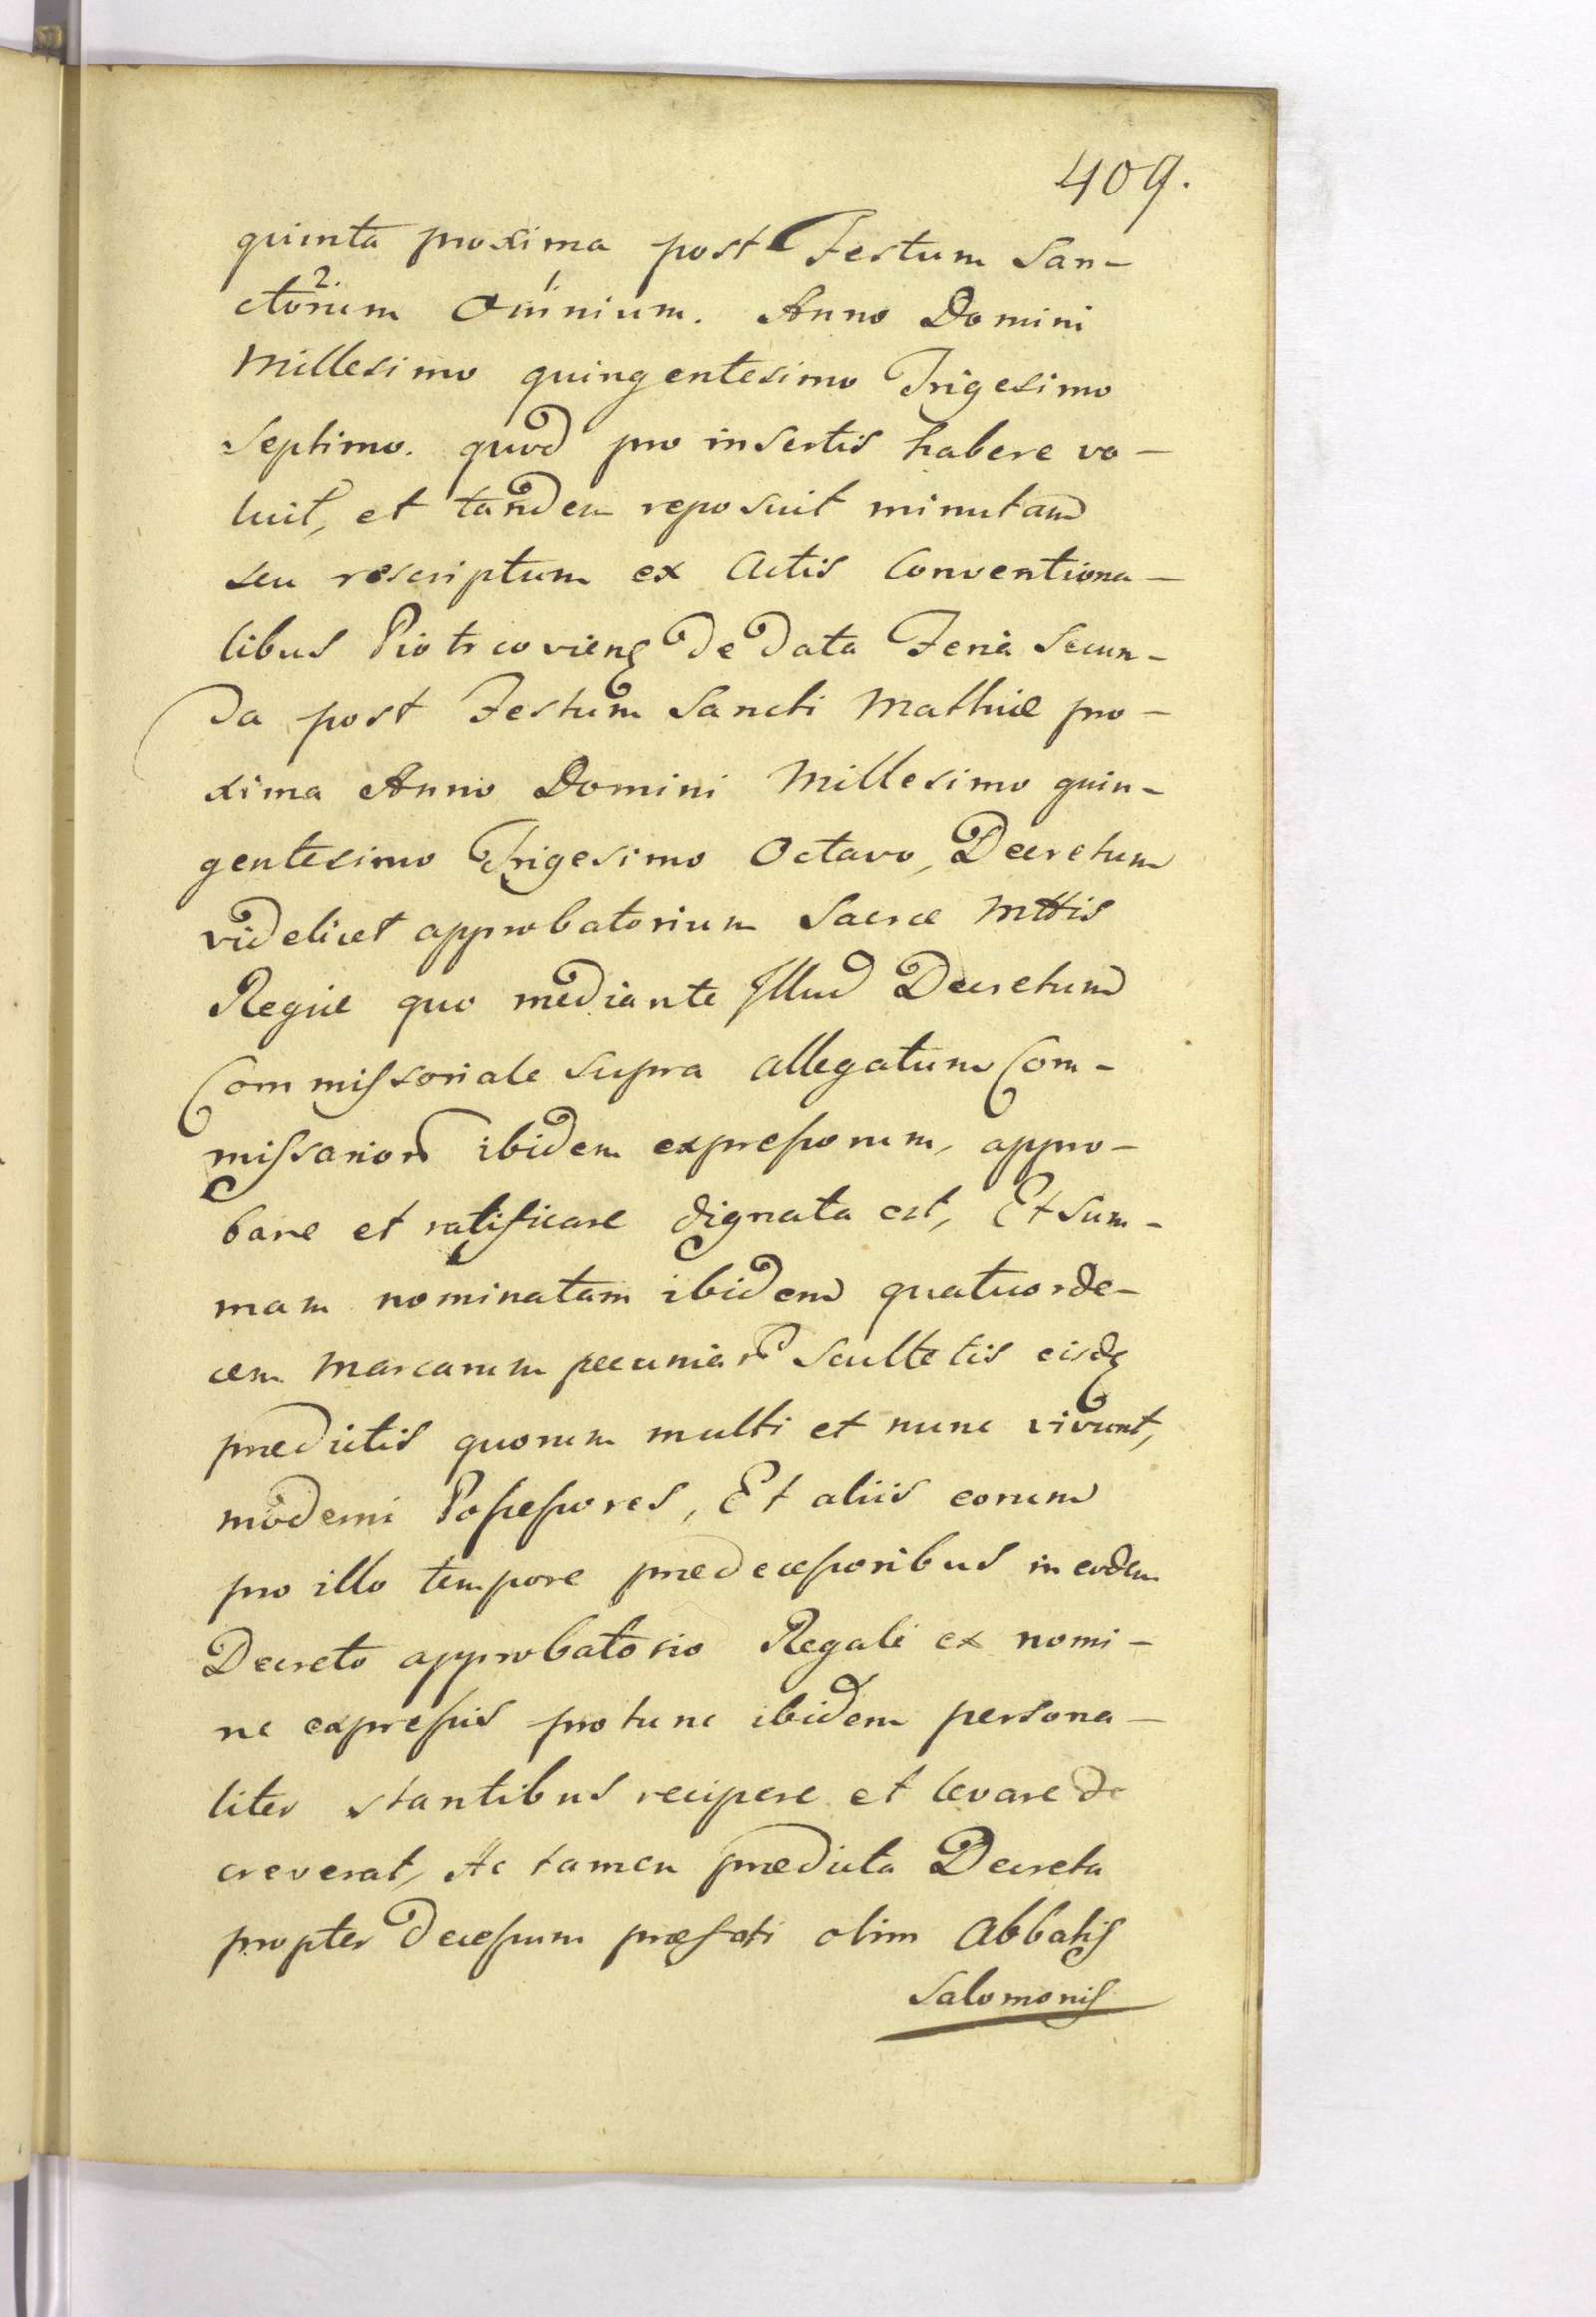 409.
quinta proxima post Festum San-
ctorum 2. Omnium 1. Anno Domini
Millesimo quingentesimo Trigesimo
Septimo. quod pro insertis habere vo-
luit, et tandem reposuit minutam
seu rescriptum ex Actis Conventiona-
libus Piotrcovieng de data Feria Secun-
da post Festum Sancti Mathiæ pro-
xima Anno Domini Millesimo quin-
gentesimo Trigesimo Octavo, Decretum
videlicet approbatorium Sacræ Mttis
Regiæ quo mediante Illud Decretum
Commissoriale supra allegatum Com-
missarior ibidem expressorum, appro-
bare et ratificare dignata est, Et Sum-
mam nominatam ibidem quatuorde-
cem Marcarum pecuniar Scultetis eisdq
prædictis quorum multi et nunc vivunt,
moderni Possessores, Et aliis eorum
pro illo tempore prædecessoribus in eodem
Decreto approbatorio Regali ex nomi-
ne expressis pro tunc ibidem persona-
liter stantibus recipere et levare de
creverat, Ac tamen prædicta Decreta
propter decessum præfati olim Abbatis
Salomonis